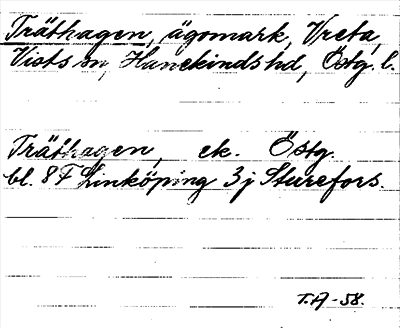 Träthagen, ägomark, Vreta,
Vists sn, Hanekinds hd, Östg. l.
Träthagen, ek. Östg.
bl. 8 F Linköping 3 j Sturefors.
T.A -58.